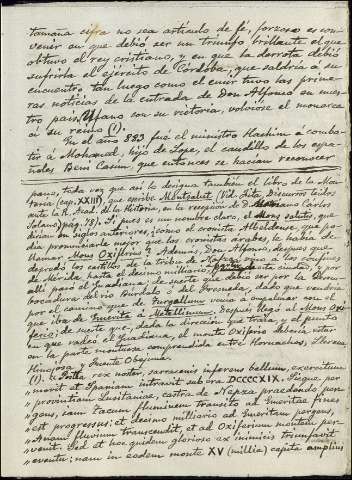 tamaña cifra no sea artículo de fé, forzoso es con-
venir en que debió ser un triunfo brillante el que
obtuvo el rey cristiano, y en que la derrota debió
sufrirla el ejército de Córdoba, que saldría á su
encuentro tan luego como el emir tuvo las prime-
ras noticias de la entrada de Don Alfonso en nues-
tro país. Ufano con su victoria, volvióse el monarca
á su reino (1).
En el año 883 fué el ministro Hachim á comba-
tir á Mohamed, hijo de Lope, el caudillo de los espa-
ñoles Beni Casim, que entonces se hacían reconocer
pano, toda vez que así lo designa también el libro de la Mon-
tería (cap. XXIII), que escribe Montsalut (Vid. Fita, Discursos leidos
ante la R. Acad. de la Historia en la recepción de D. Mariano Carlos
Solano) pag. 78). Si, pues es un nombre claro, el Mons salutis, que
dirían en siglos anteriores, como el cronista Albeldense, que po-
día pronunciarle mejor que los cronistas arabes, le había de
llamar Mons Oxiferio. Además, Don Alfonso, después que
depredó los castillos de la tribu de Nafza, vino á los confines
de Mérida, hasta el decimo miliario, partiendo de esta ciudad, y por
allí pasó el Guadiana; de suerte que hubo de ser por la desem-
bocadura del río Burdalo ó del Fresneda, dado que vendría
por el camino que de Turgallum venía á empalmar con el
que iba de Emerita á Metellinum. Después llegó al Mons Oxi-
ferio; de suerte que, dada la dirección que traía, y el punto
en que vadeó el Guadiana, el monte Oxiferio debería estar
en la parte montuosa comprendida entre Hornachos, Llerena,
Hinojosa y Fuente Obejuna.
(1). Istoque rex noster, sarracenis inferens bellum, exercitum
movit et Spaniam intravit sub era DCCCCXIX. Sicque per
provintiam Lusitaniæ, castra de Nepza præcedendo per-
gens, iam Tacum fluminem transito ad Emeritæ fines
est progressus; et decimo milliario ab Emeritam pergens,
Anam fluvium transcendit, et ad Oxiferium montem per-
venit. Sed et hoc quidem glorioso ex inimicis triumfavit
eventu; nam in eodem monte XV (millia) capita amplius